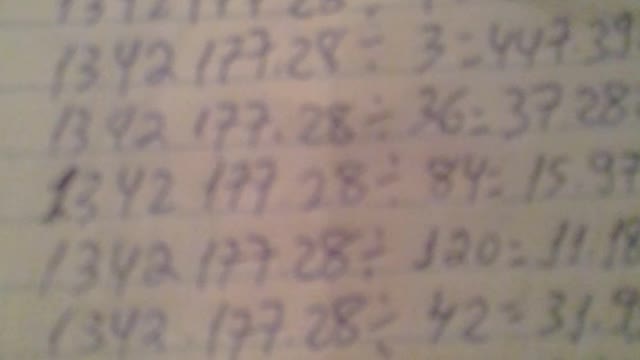 1342 177.28 ÷
1342 177.28 ÷ 3 = 447.39
1342 177.28 ÷ 36 = 37 28
1342 177.28 ÷ 84 = 15.97
1342 177.28 ÷ 120 = 11.18
1342.177.28 ÷ 42 = 31.9